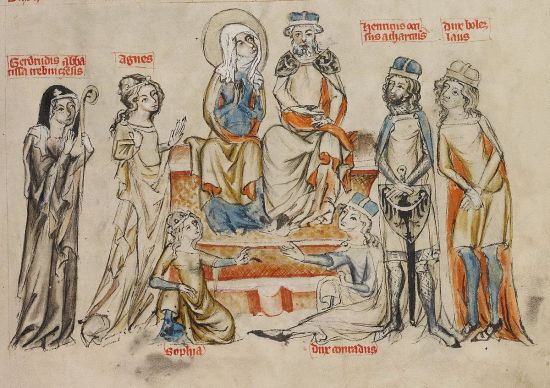 Gerdrudis abba
tissa trebnicēsis
Agnes
Henricus occi
sus a thartaris
dux bolez
laus
Sophia
dux conradus